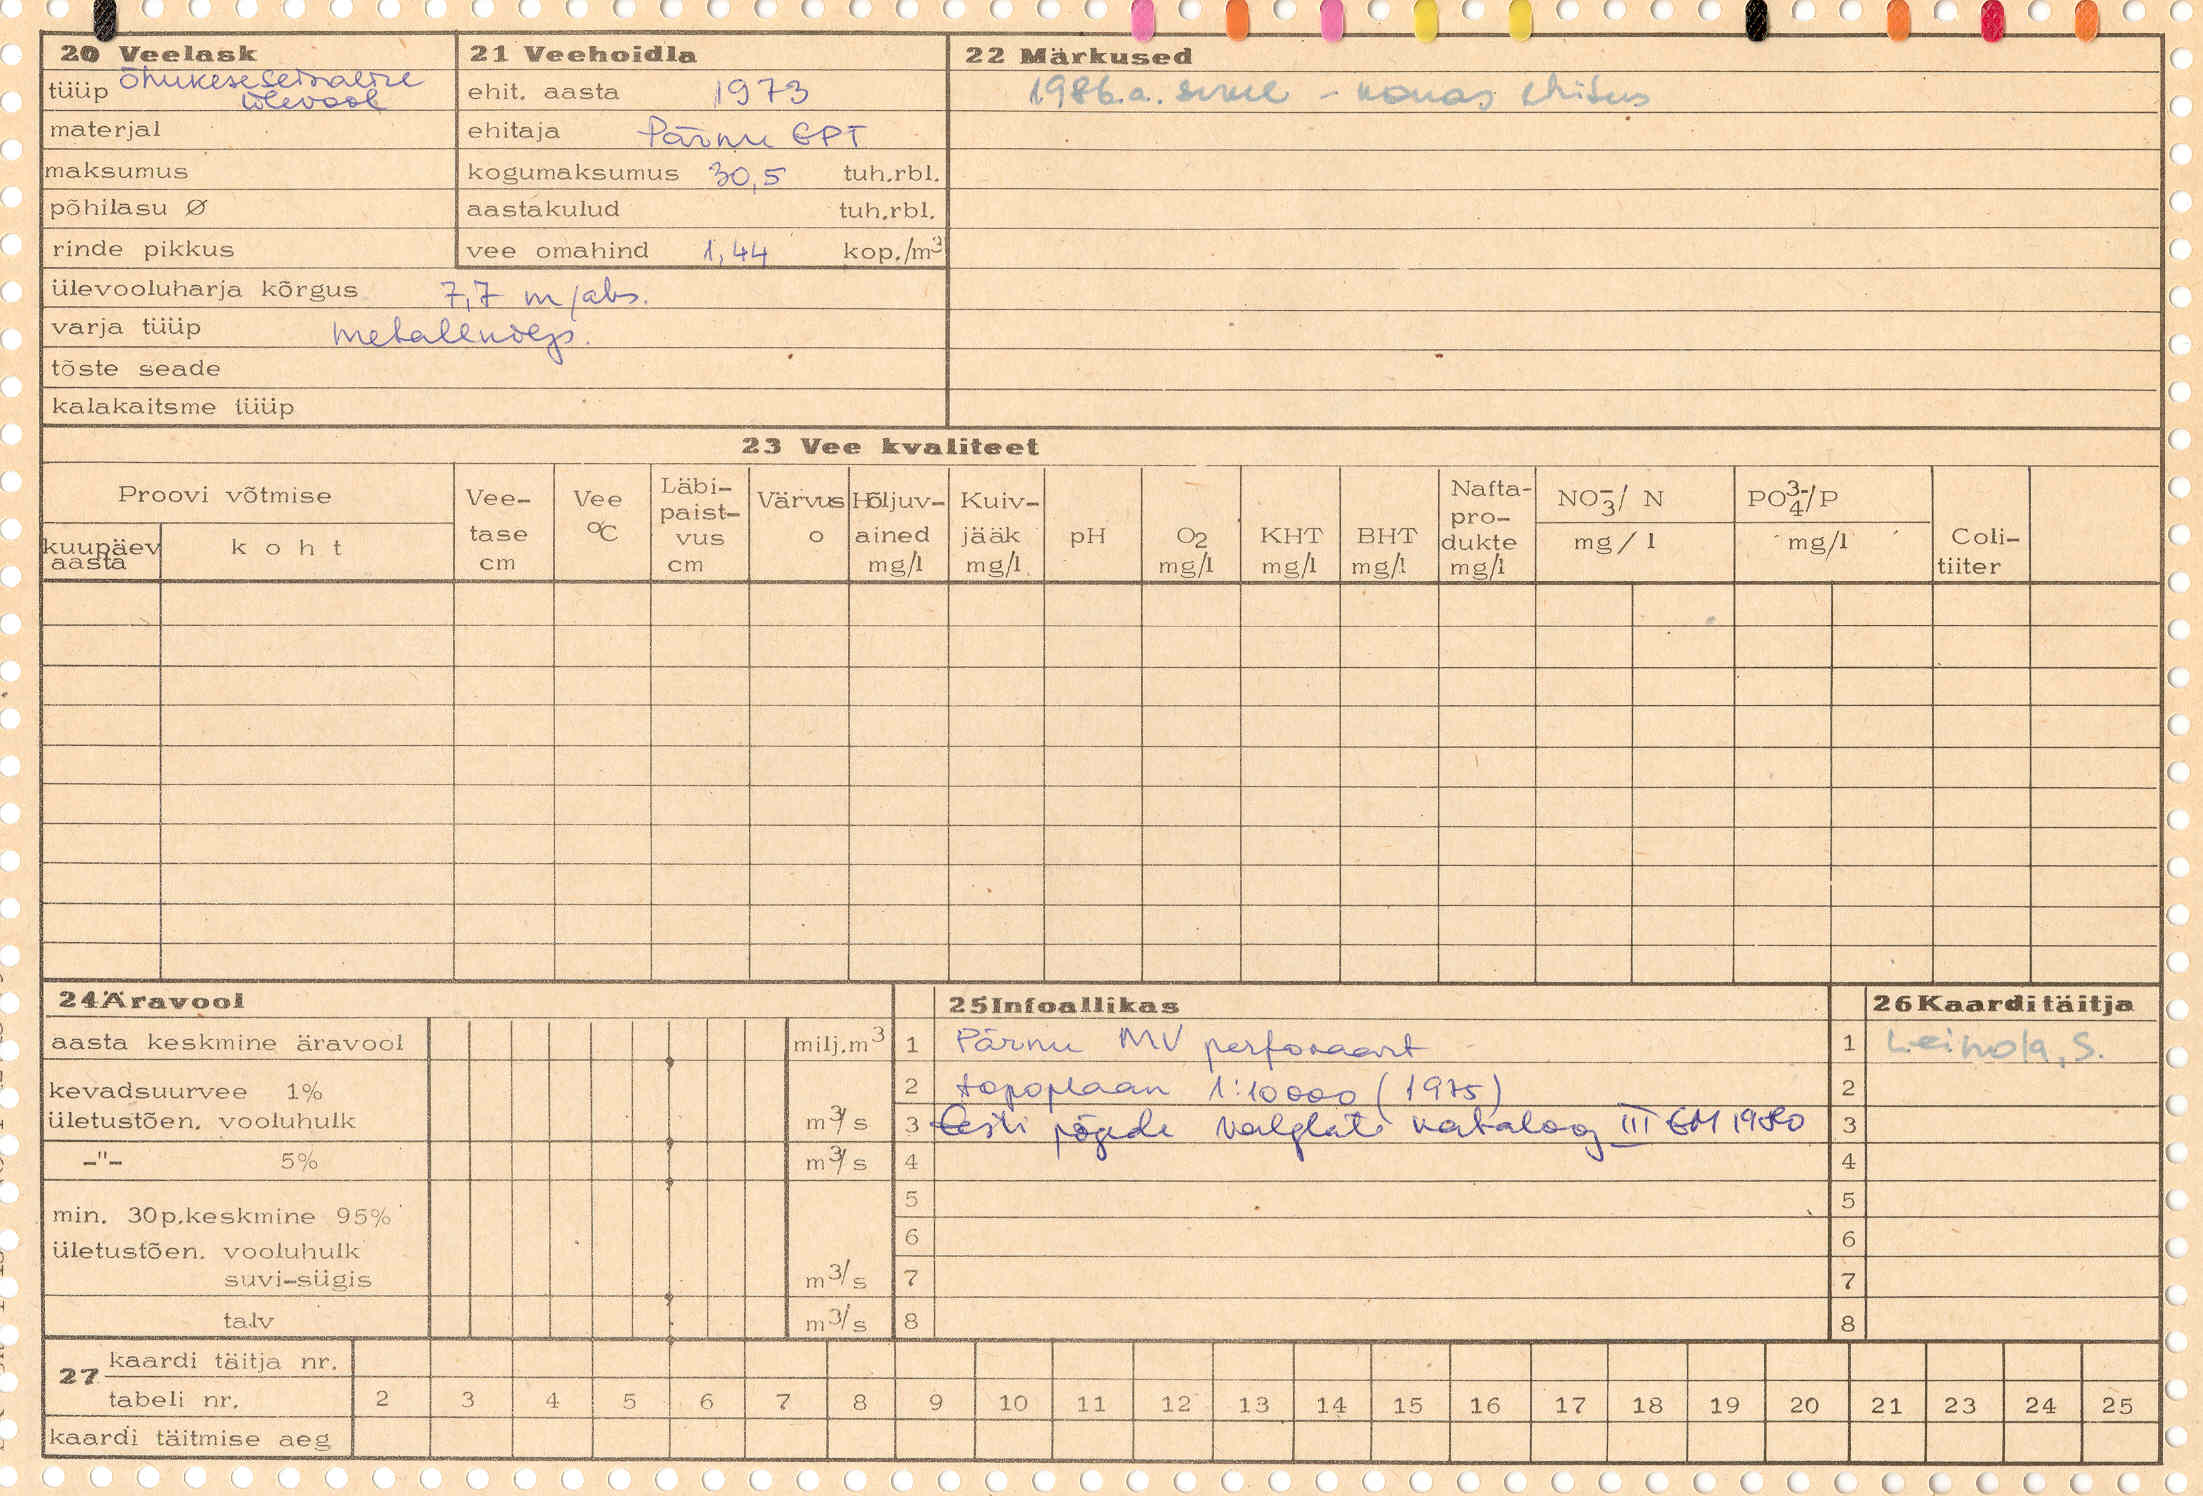 20 Veelask
tüüp õhukeseseinaline
ülevool
materjal
maksumus
põhilasu Ø
rinde pikkus
ülevooluharja kõrgus 7,7 m/abs.
varja tüüp metallvarjs.
tõste seade
kalakaitsme tüüp
21 Veehoidla
ehit. aasta 1973
ehitaja Pärnu EPT
kogumaksumus 30,5 tuh.rbl.
aastakulud tuh.rbl.
vee omahind 1,44 kop./m³
22 Märkused
1986.a. - ehitus
23 Vee kvaliteet
Proovi võtmise
kuupäev aasta
koht
Vee-
tase
cm
Vee
°C
Läbi-
paist-
vus
cm
Värvus
o
Hõljuv-
ained
mg/l
Kuiv-
jääk
mg/l
pH
O₂
mg/l
KHT
mg/l
BHT
mg/l
Nafta-
pro-
dukte
mg/l
NO₃⁻/ N
mg / l
PO₄³⁻/P
mg/l
Coli-
tiiter
24 Äravool
aasta keskmine äravool milj.m³
kevadsuurvee 1%
ületustõen. vooluhulk m³/s
-"- 5% m³/s
min. 30p.keskmine 95%
ületustõen. vooluhulk
suvi-sügis m³/s
talv m³/s
25 Infoallikas
1 Pärnu MV perfokaart
2 topoplaan 1:10000 (1975)
3 Eesti jõgede valglate kataloog III EM 1980
4
5
6
7
8
26 Kaardi täitja
1 Leinola, S.
2
3
4
5
6
7
8
27 kaardi täitja nr.
tabeli nr. 2 3 4 5 6 7 8 9 10 11 12 13 14 15 16 17 18 19 20 21 23 24 25
kaardi täitmise aeg